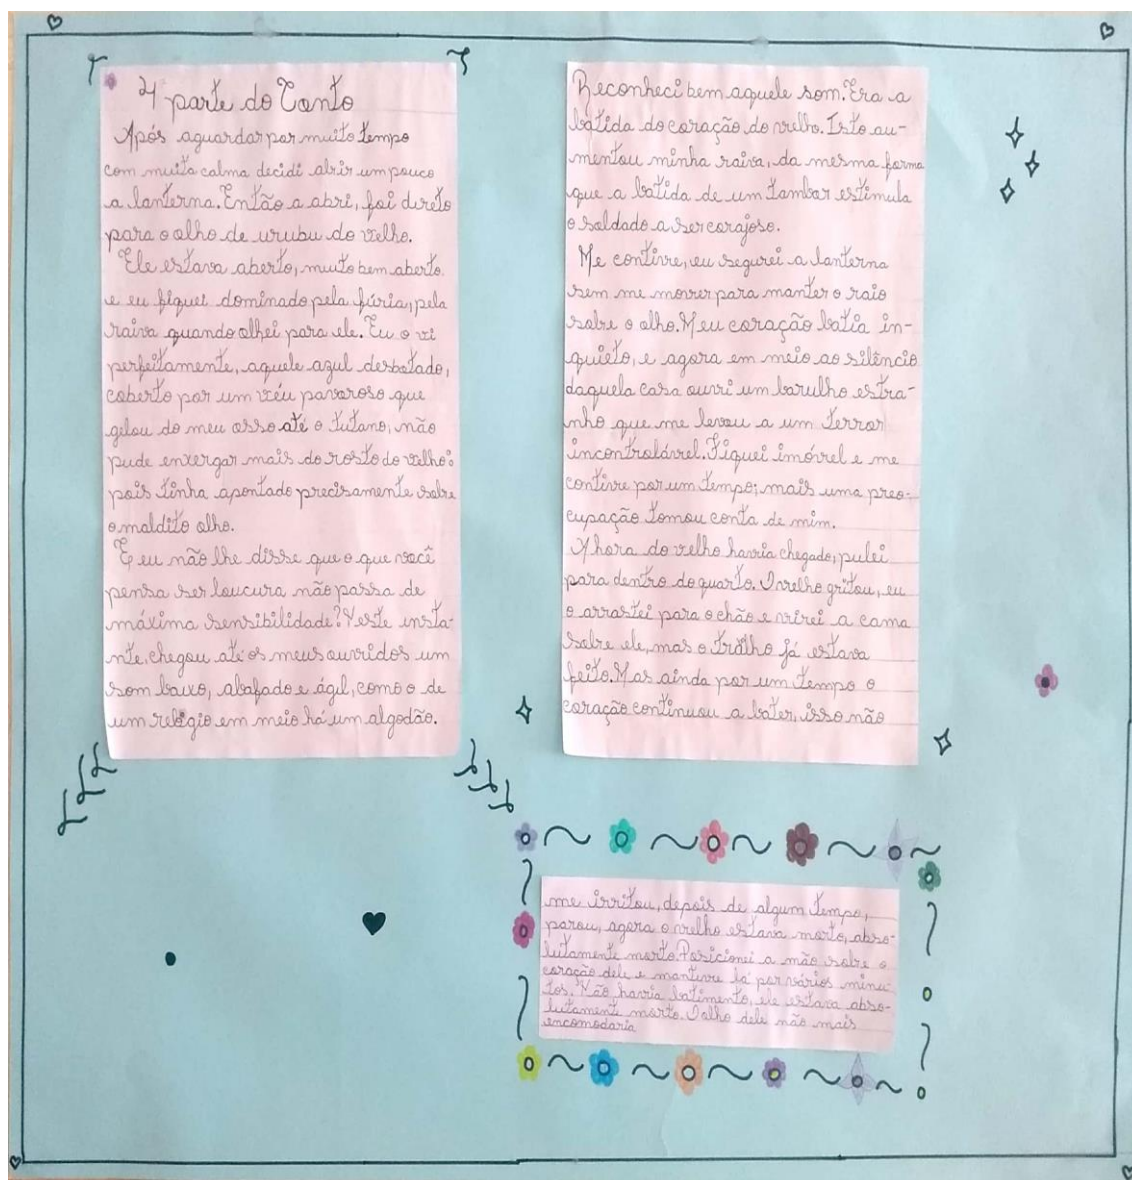 4 parte do Conto
Após aguardar por muito tempo
com muita calma decidi abrir um pouco
a lanterna. Então a abri, foi direto
para o olho de urubu do velho.
Ele estava aberto, muito bem aberto
e eu fiquei dominado pela fúria, pela
raiva quando olhei para ele. Eu o vi
perfeitamente, aquele azul desbotado,
coberto por um véu pavoroso que
gelou do meu osso até o tutano, não
pude enxergar mais do rosto do velho:
pois tinha apontado precisamente sobre
o maldito olho.
E eu não lhe disse que o que você
pensa ser loucura não passa de
máxima sensibilidade? Neste insta-
nte, chegou até os meus ouvidos um
som baixo, abafado e ágil, como o de
um relógio em meio há um algodão.
Reconheci bem aquele som. Era a
batida do coração do velho. Isto au-
mentou minha raiva, da mesma forma
que a batida de um tambor estimula
o soldado a ser corajoso.
Me contive, eu segurei a lanterna
sem me mover para manter o raio
sobre o olho. Meu coração batia in-
quieto, e agora em meio ao silêncio
daquela casa ouvi um barulho estra-
nho que me levou a um terror
incontrolável. Fiquei imóvel e me
contive por um tempo; mais uma preo-
cupação tomou conta de mim.
A hora do velho havia chegado, pulei
para dentro do quarto. O velho gritou, eu
o arrastei para o chão e virei a cama
sobre ele, mas o tralho já estava
feito. Mas ainda por um tempo o
coração continuou a bater, isso não
me irritou, depois de algum tempo,
parou, agora o velho estava morto, abso-
lutamente morto. Posicionei a mão sobre o
coração dele e mantive lá por vários minu-
tos. Não havia batimento, ele estava abso-
lutamente morto. O olho dele não mais
encomodaria